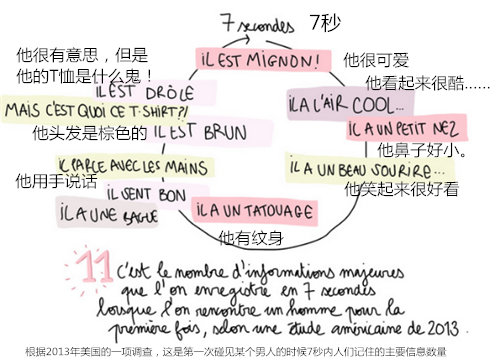 7 secondes 7秒
iL EST MIGNON!
他很可爱
他看起来很酷……
iL A L'AIR COOL...
iL A UN PETIT NEZ
他鼻子好小。
iL A UN BEAU SOURIRE...
他笑起来很好看
iL A UN TATOUAGE
他有纹身
iL A UNE BAGUE
iL SENT BON
他用手说话
iL PARLE AVEC LES MAINS
他头发是棕色的
iL EST BRUN
MAIS C'EST QUOI CE T-SHIRT?!
iL EST DRÔLE
他很有意思，但是
他的T恤是什么鬼！
11 C'est le nombre d'informations majeures
que l'on enregistre en 7 secondes
lorsque l'on rencontre un homme pour la
première fois, selon une étude américaine de 2013.
根据2013年美国的一项调查，这是第一次碰见某个男人的时候7秒内人们记住的主要信息数量